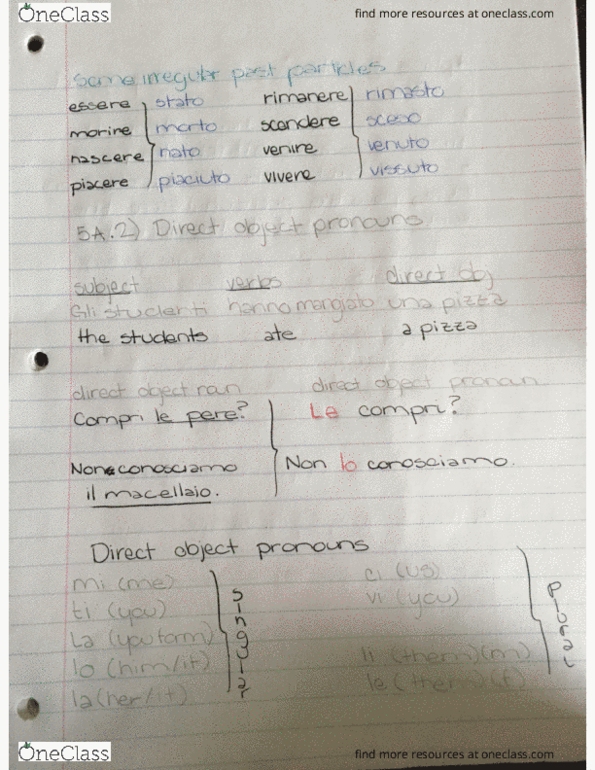 OneClass
find more resources at oneclass.com
Some irregular past particles
essere stato rimanere rimasto
morire morto scendere sceso
nascere nato venire venuto
piacere piaciuto vivere vissuto
5A.2) Direct object pronouns
subject verbs direct obj
Gli studenti hanno mangiato una pizza
the students ate a pizza
direct object noun direct object pronoun
Compri le pere? Le compri?
Non conosciamo Non lo conosciamo.
il macellaio.
Direct object pronouns
mi (me) ci (us)
ti (you) vi (you)
La (you form)
lo (him/it) li (them)(m)
la (her/it) le (them)(f)
singular
plural
OneClass
find more resources at oneclass.com